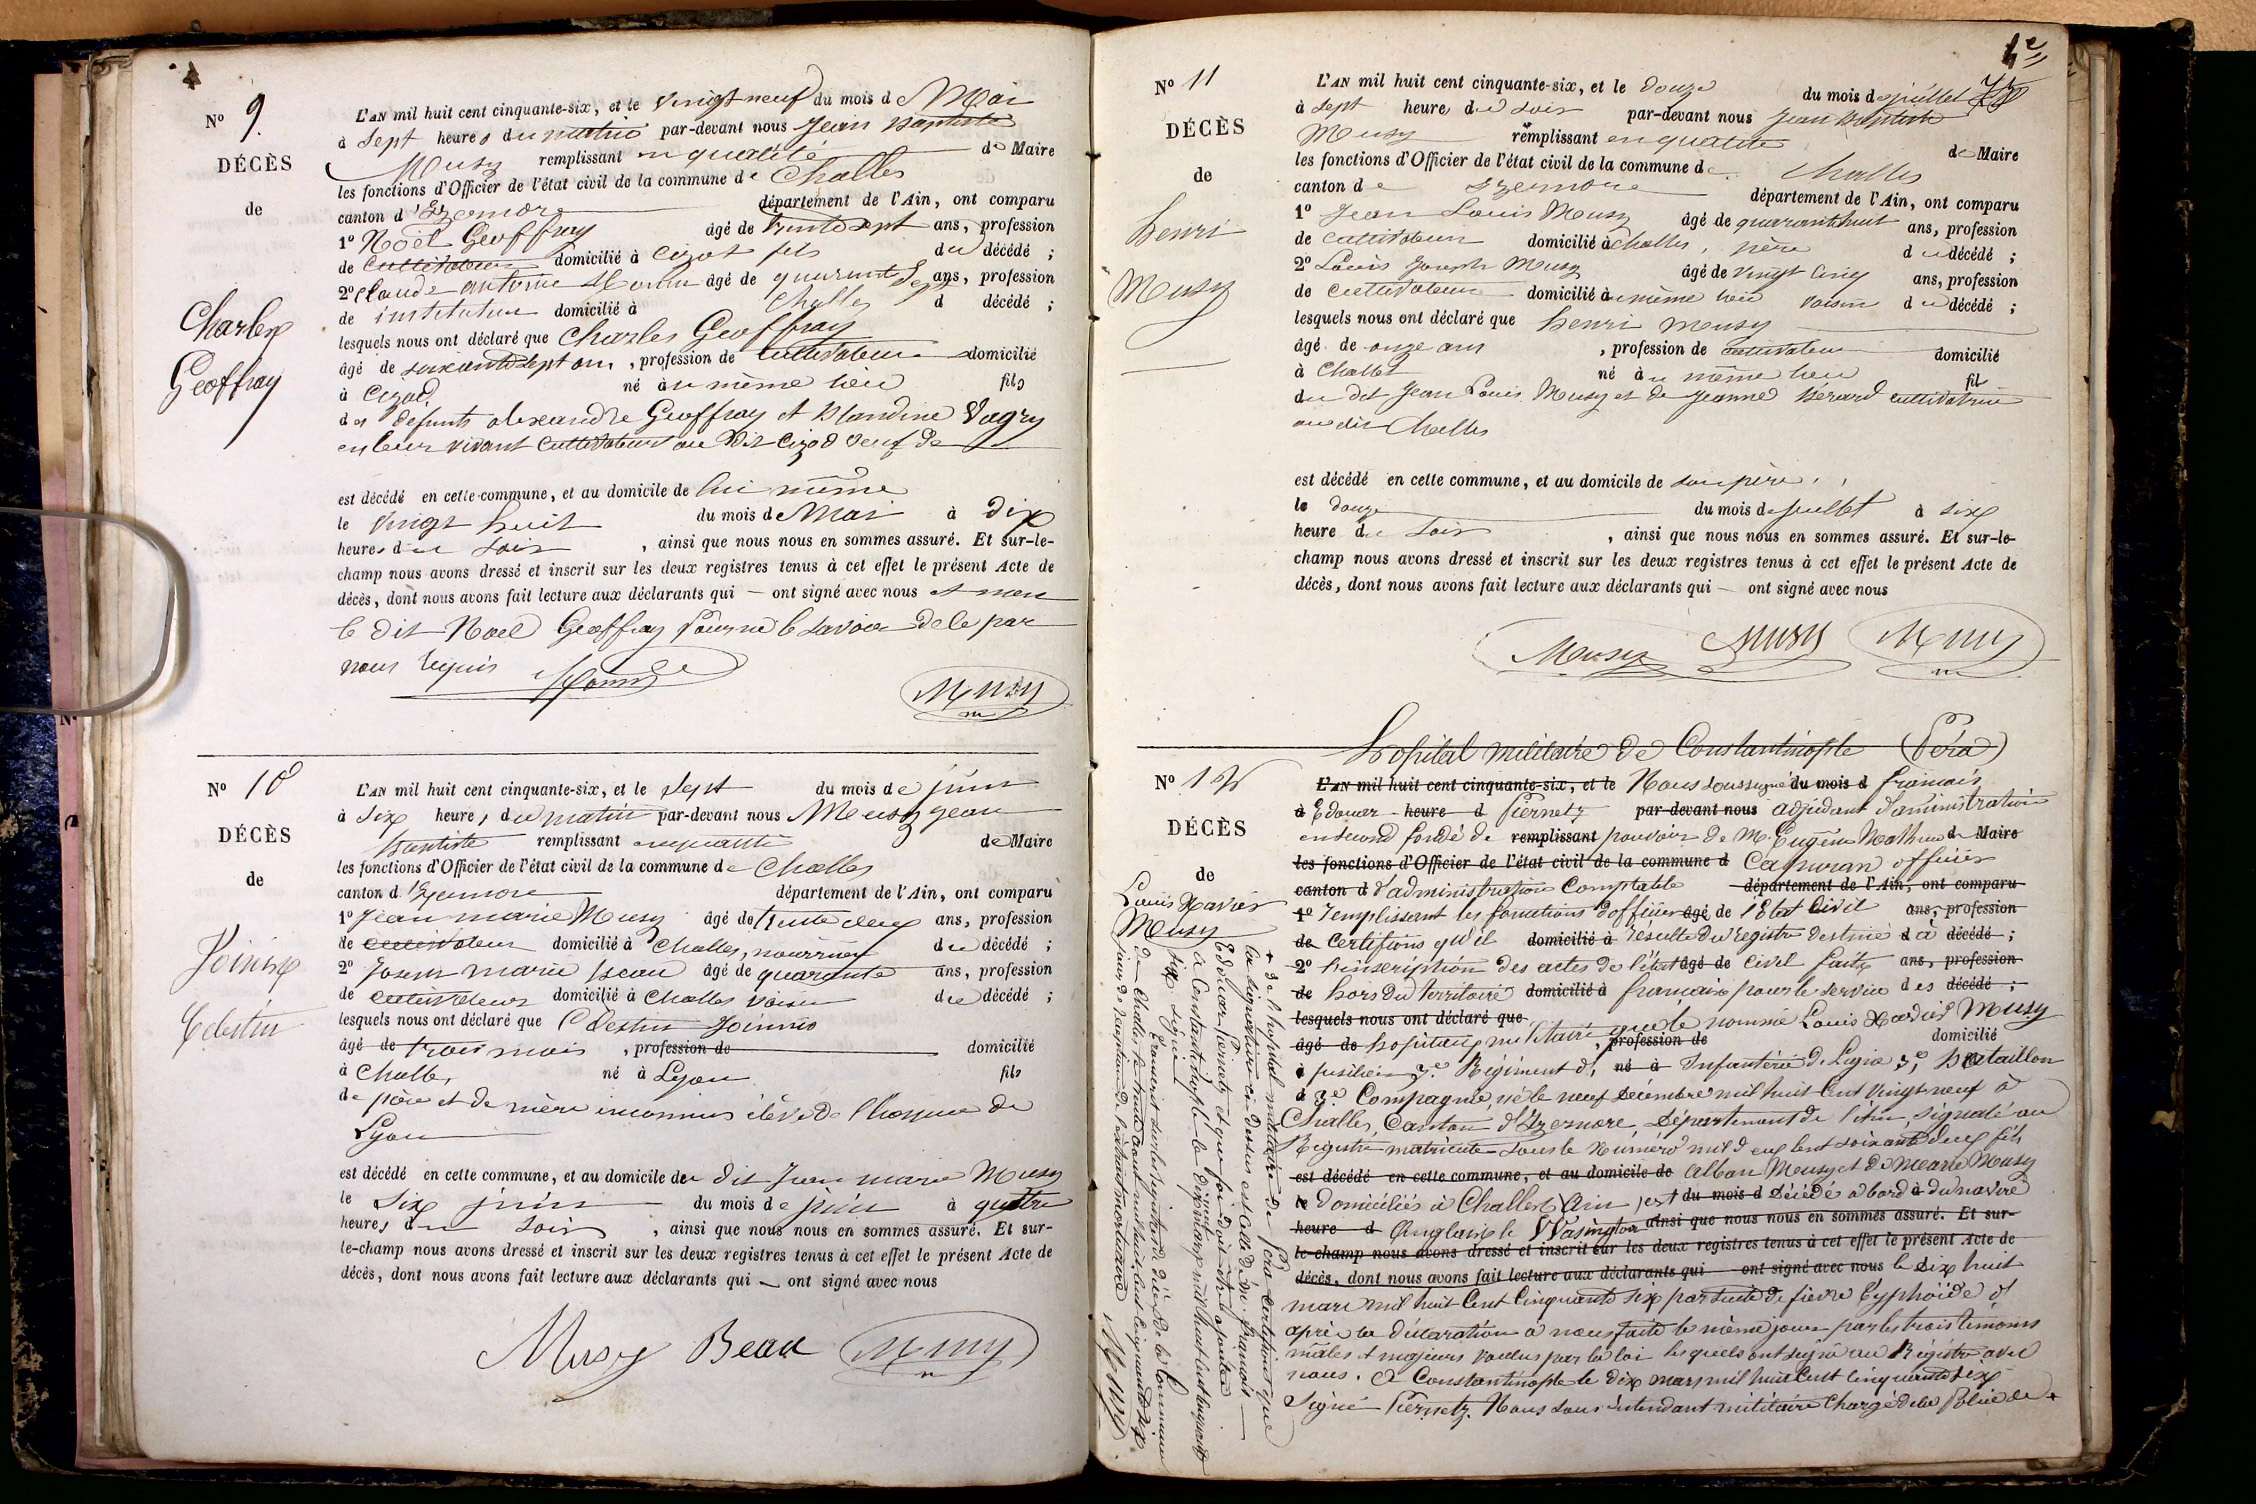 No 9.
DÉCÈS
de
Charles
Geoffray
L'AN mil huit cent cinquante-six, et le vingt neuf du mois de Mai
à sept heures du matin par-devant nous Jean Baptiste
Musy remplissant en qualité de Maire
les fonctions d'Officier de l'état civil de la commune de Challes
canton d'Izernore département de l'Ain, ont comparu
1o Noël Geoffray âgé de trente sept ans, profession
de cultivateur domicilié à Cizod fils du décédé ;
2o Claude antoine âgé de quarante sept ans, profession
de instituteur domicilié à Challes d décédé ;
lesquels nous ont déclaré que Charles Geoffray
âgé de soixante sept ans, profession de cultivateur domicilié
à Cizod né à u même lieu fils
des défunts alexandre Geoffray et Blandine Vagry
en leur vivant cultivateurs au dit Cizod veuf de
est décédé en cette commune, et au domicile de lui même
le vingt huit du mois de Mai à dix
heures du soir, ainsi que nous nous en sommes assuré. Et sur-le-
champ nous avons dressé et inscrit sur les deux registres tenus à cet effet le présent Acte de
décès, dont nous avons fait lecture aux déclarants qui — ont signé avec nous et non
le dit Noel Geoffray pour ne le savoir de le par
nous requis
Musy
No 10
DÉCÈS
de
Joinin
Celestin
L'AN mil huit cent cinquante-six, et le sept du mois de juin
à six heures du matin par-devant nous Musy jean
Baptiste remplissant en qualité de Maire
les fonctions d'Officier de l'état civil de la commune de Challes
canton d'Izernore département de l'Ain, ont comparu
1o Jean marie Musy âgé de trente deux ans, profession
de cultivateur domicilié à Challes, nourricier du décédé ;
2o Joseph marie Beau âgé de quarante ans, profession
de cultivateur domicilié à Challes voisin du décédé ;
lesquels nous ont déclaré que Celestin Joinin
âgé de trois mois, profession de domicilié
à Challes né à Lyon fils
de père et de mère inconnus élève de l'hospice de
Lyon
est décédé en cette commune, et au domicile du dit Jean marie Musy
le six juin du mois de juin à quatre
heures du soir, ainsi que nous nous en sommes assuré. Et sur-
le-champ nous avons dressé et inscrit sur les deux registres tenus à cet effet le présent Acte de
décès, dont nous avons fait lecture aux déclarants qui — ont signé avec nous
Musy Beau Musy
No 11
DÉCÈS
de
henri
Musy
L'AN mil huit cent cinquante-six, et le douze du mois de juillet
à sept heure du soir par-devant nous Jean Baptiste
Musy remplissant en qualité de Maire
les fonctions d'Officier de l'état civil de la commune de Challes
canton de Izernore département de l'Ain, ont comparu
1o Jean Louis Musy âgé de quarante huit ans, profession
de cultivateur domicilié à Challes, père du décédé ;
2o Louis Joseph Musy âgé de vingt cinq ans, profession
de cultivateur domicilié à u même lieu voisin du décédé ;
lesquels nous ont déclaré que henri musy
âgé de onze ans, profession de cultivateur domicilié
à Challes né à u même lieu fils
du dit Jean Louis Musy et de Jeanne Bérard cultivatrice
au dit Challes
est décédé en cette commune, et au domicile de son père
le douze du mois de juillet à six
heure du soir, ainsi que nous nous en sommes assuré. Et sur-le-
champ nous avons dressé et inscrit sur les deux registres tenus à cet effet le présent Acte de
décès, dont nous avons fait lecture aux déclarants qui — ont signé avec nous
Musy Musy Musy
hopital militaire de Constantinople (Péra)
No 12
DÉCÈS
de
Louis Xavier
Musy
L'AN mil huit cent cinquante-six, et le Nous soussigné du mois d français
à Edouar heure d Piernetz par-devant nous adjudant d'administration
en second fondé de remplissant pouvoir de M. Eugène Mathieu de Maire
les fonctions d'Officier de l'état civil de la commune d officier
canton d d'administration Comptable département de l'Ain, ont comparu
1o remplissant les fonctions d'officier âgé de l'Etat Civil ans, profession
de Certifions qu'il domicilié à résulte du registre destiné d à décédé ;
2o l'inscription des actes de l'état âgé de civil faits ans, profession
de hors du territoire domicilié à français pour le service des décédé ;
lesquels nous ont déclaré que
âgé de hopitaux militaire, que le nommé Louis Xavier Musy profession de domicilié
à fusilier 3e Régiment d' né à Infanterie de Ligne 3e bataillon
d 3e Compagnie, né le neuf Décembre mil huit cent vingt neuf à
Challes, Canton d'Izernore, Département de l'Ain, signalé au
Registre matricule sous le Numéro mil deux cent soixante deux fils
est décédé en cette commune, et au domicile de Alban Musy et de Marie Musy
le domiciliés à Challes (Ain) est du mois d décédé à bord à du navire
heure d Anglais le Wasington ainsi que nous nous en sommes assuré. Et sur-
le-champ nous avons dressé et inscrit sur les deux registres tenus à cet effet le présent Acte de
décès, dont nous avons fait lecture aux déclarants qui — ont signé avec nous le dix huit
mars mil huit Cent Cinquante six par suite de fièvre Typhoïde d'
après la déclaration à nous faite le même jour par les trois témoins
mâles et majeurs voulus par la loi lesquels ont signé au Régistre avec
nous. A Constantinople le dix mars mil huit Cent Cinquante six
Signé Piernetz. Nous sous intendant militaire Chargé de la Police de +
+ de l'hopital militaire de Pera Certifions que
la signature ci dessus est celle de M. français
Edouar Piernetz et que foi doit être ajoutée
à Constantinople le dix mars mil huit cent cinquante
six signé
transcrit sur les registres de décès de la Commune
de Challes le trente août mil huit cent cinquante six
jour de réception de l'extrait mortuaire Musy